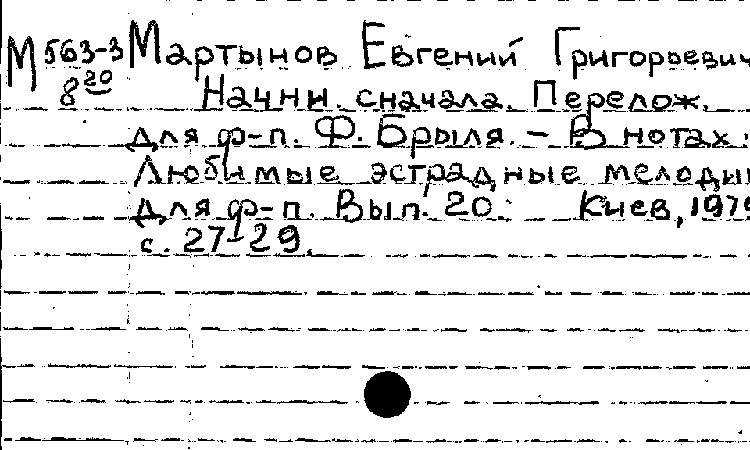 М 563-3 Мартынов Евгений Григорьевич
8 20 Начни сначала. Перелож.
для ф-п. Ф. Брыля. – В нотах:
Любимые эстрадные мелодии
для ф-п. Вып. 20. Киев, 1979
с. 27-29.